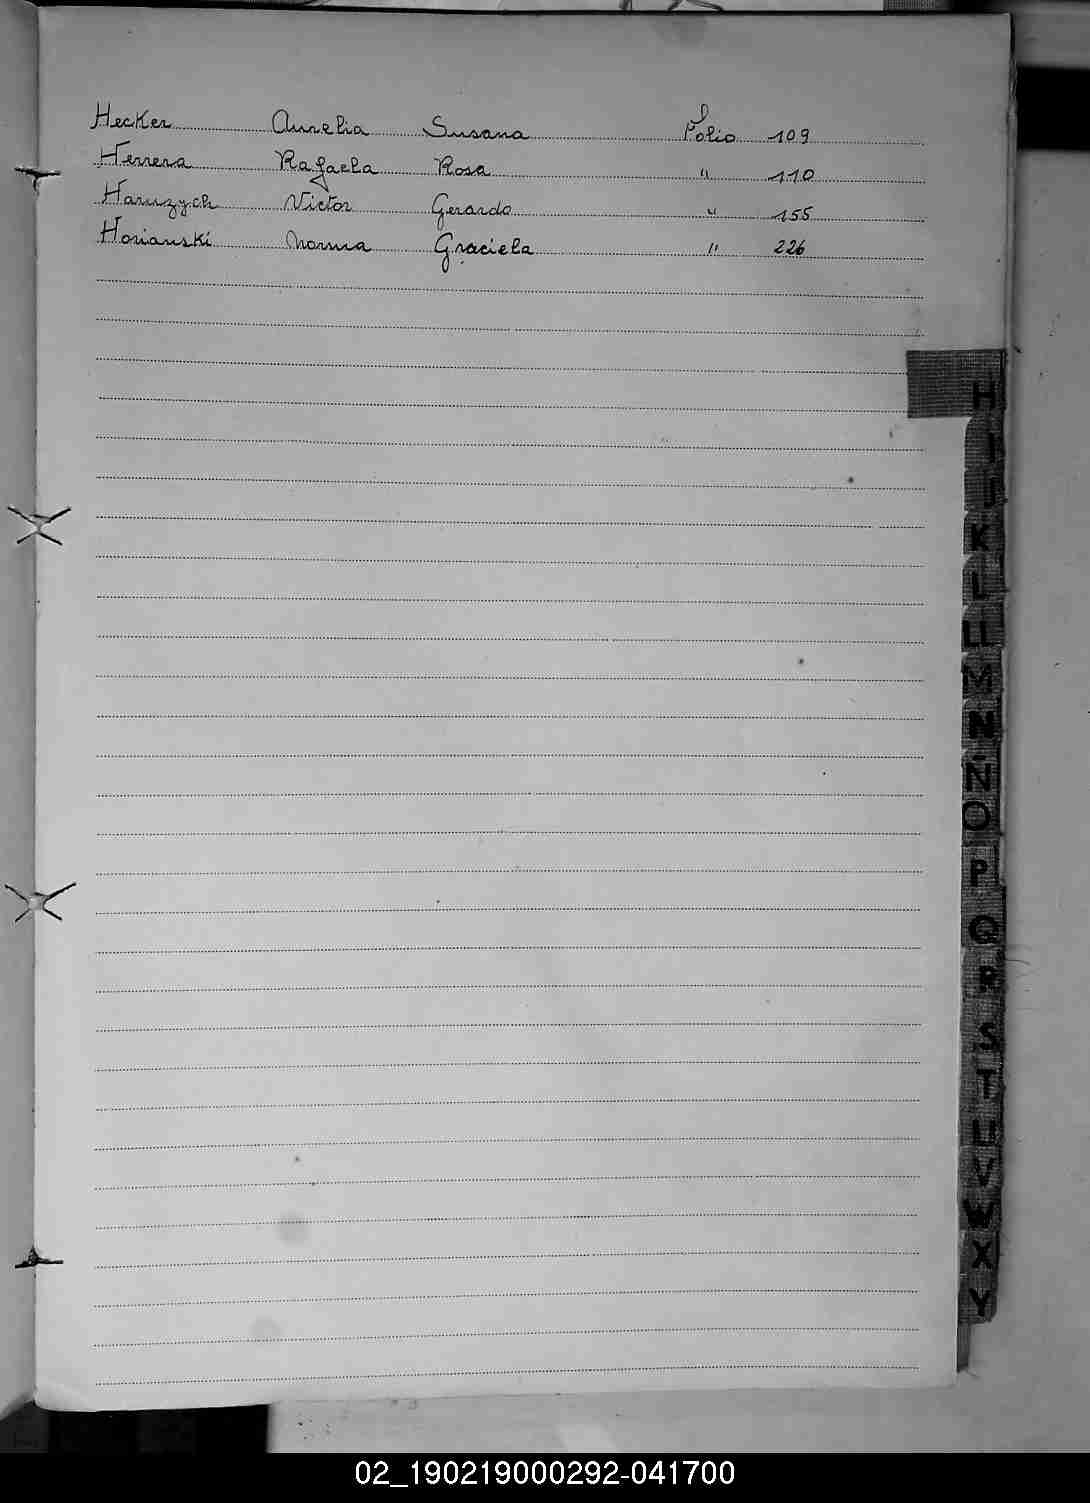 Hecker Aurelia Susana Folio 109
Herrera Rafaela Rosa " 110
Haruzych Victor Gerardo " 155
Horianski Norma Graciela " 226
H
I
J
K
L
LL
M
N
Ñ
O
P
Q
R
S
T
U
V
W
X
Y
02_190219000292-041700